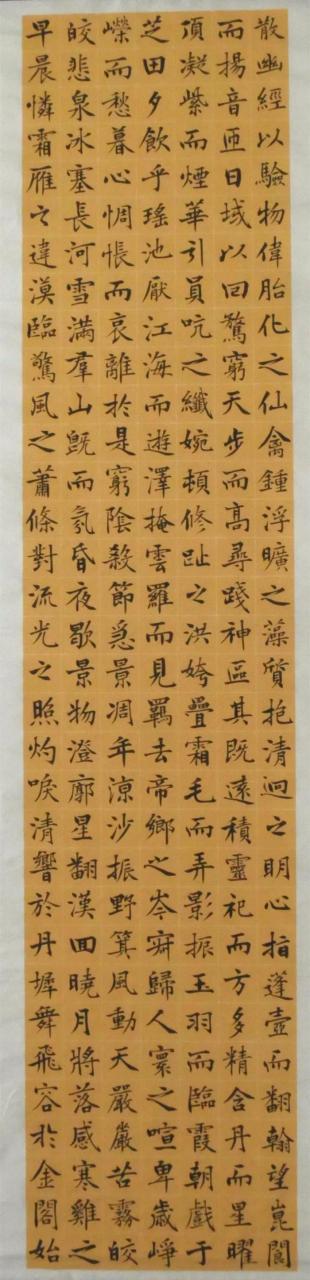 散幽經以驗物偉胎化之仙禽鍾浮曠之藻質抱清迥之明心指蓬壺而翻翰望崑閬
而揚音匝日域以回騖窮天步而高尋踐神區其既遠積靈祀而方多精含丹而星曜
頂凝紫而煙華引員吭之纖婉頓修趾之洪姱疊霜毛而弄影振玉羽而臨霞朝戲于
芝田夕飲乎瑤池厭江海而遊澤掩雲羅而見羈去帝鄉之岑寂歸人寰之喧卑歲崢
嶸而愁暮心惆悵而哀離於是窮陰殺節急景凋年涼沙振野箕風動天嚴嚴苦霧皎
皎悲泉冰塞長河雪滿羣山既而氛昏夜歇景物澄廓星翻漢回曉月將落感寒雞之
早晨憐霜雁之違漠臨驚風之蕭條對流光之照灼唳清響於丹墀舞飛容於金閣始